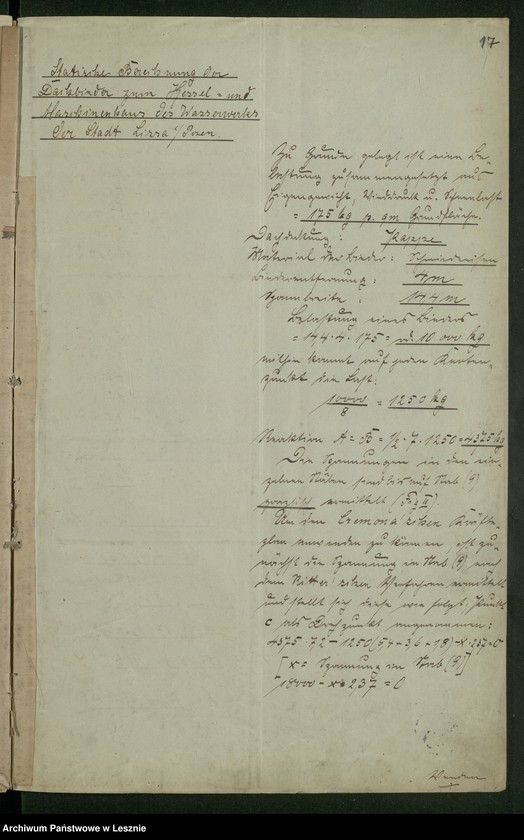 17
Statische Berechnung der
Dachbinder zum Kessel- und
Maschinenhaus des Wasserwerks
der Stadt Lissa i/Posen.
Zu Grunde gelegt ist eine Be-
lastung zusammengesetzt aus
Eigengewicht, Winddruck u. Schneelast
= 175 kg p. qm Grundfläche.
Dachdeckung: Pappe
Material der Binder: Schmiedeeisen
Binderentfernung: 4 m
Spannweite: 14,4 m
Belastung eines Binders
= 14,4 · 4 · 175 = rd. 10 000 kg
mithin kommt auf jeden Knoten-
punkt die Last:
10000/8 = 1250 kg
Reaktion A = B = 1/2 · 7 · 1250 = 4375 kg
Die Spannungen in den ein-
zelnen Stäben sind bis auf Stab (9)
graphisch ermittelt
Um den Cremona'schen Kräfte-
plan anwenden zu können ist zu-
nächst die Spannung in Stab (9) nach
dem Ritter'schen Verfahren ermittelt
und stellt sich diese wie folgt. Punkt
C als Drehpunkt angenommen:
4375 · 7,2 - 1250 (5,4 - 3,6 - 1,8) - x · 2,37 = 0
[x = Spannung im Stab (9)]
18000 - x · 2,37 = 0
Wenden
Archiwum Państwowe w Lesznie